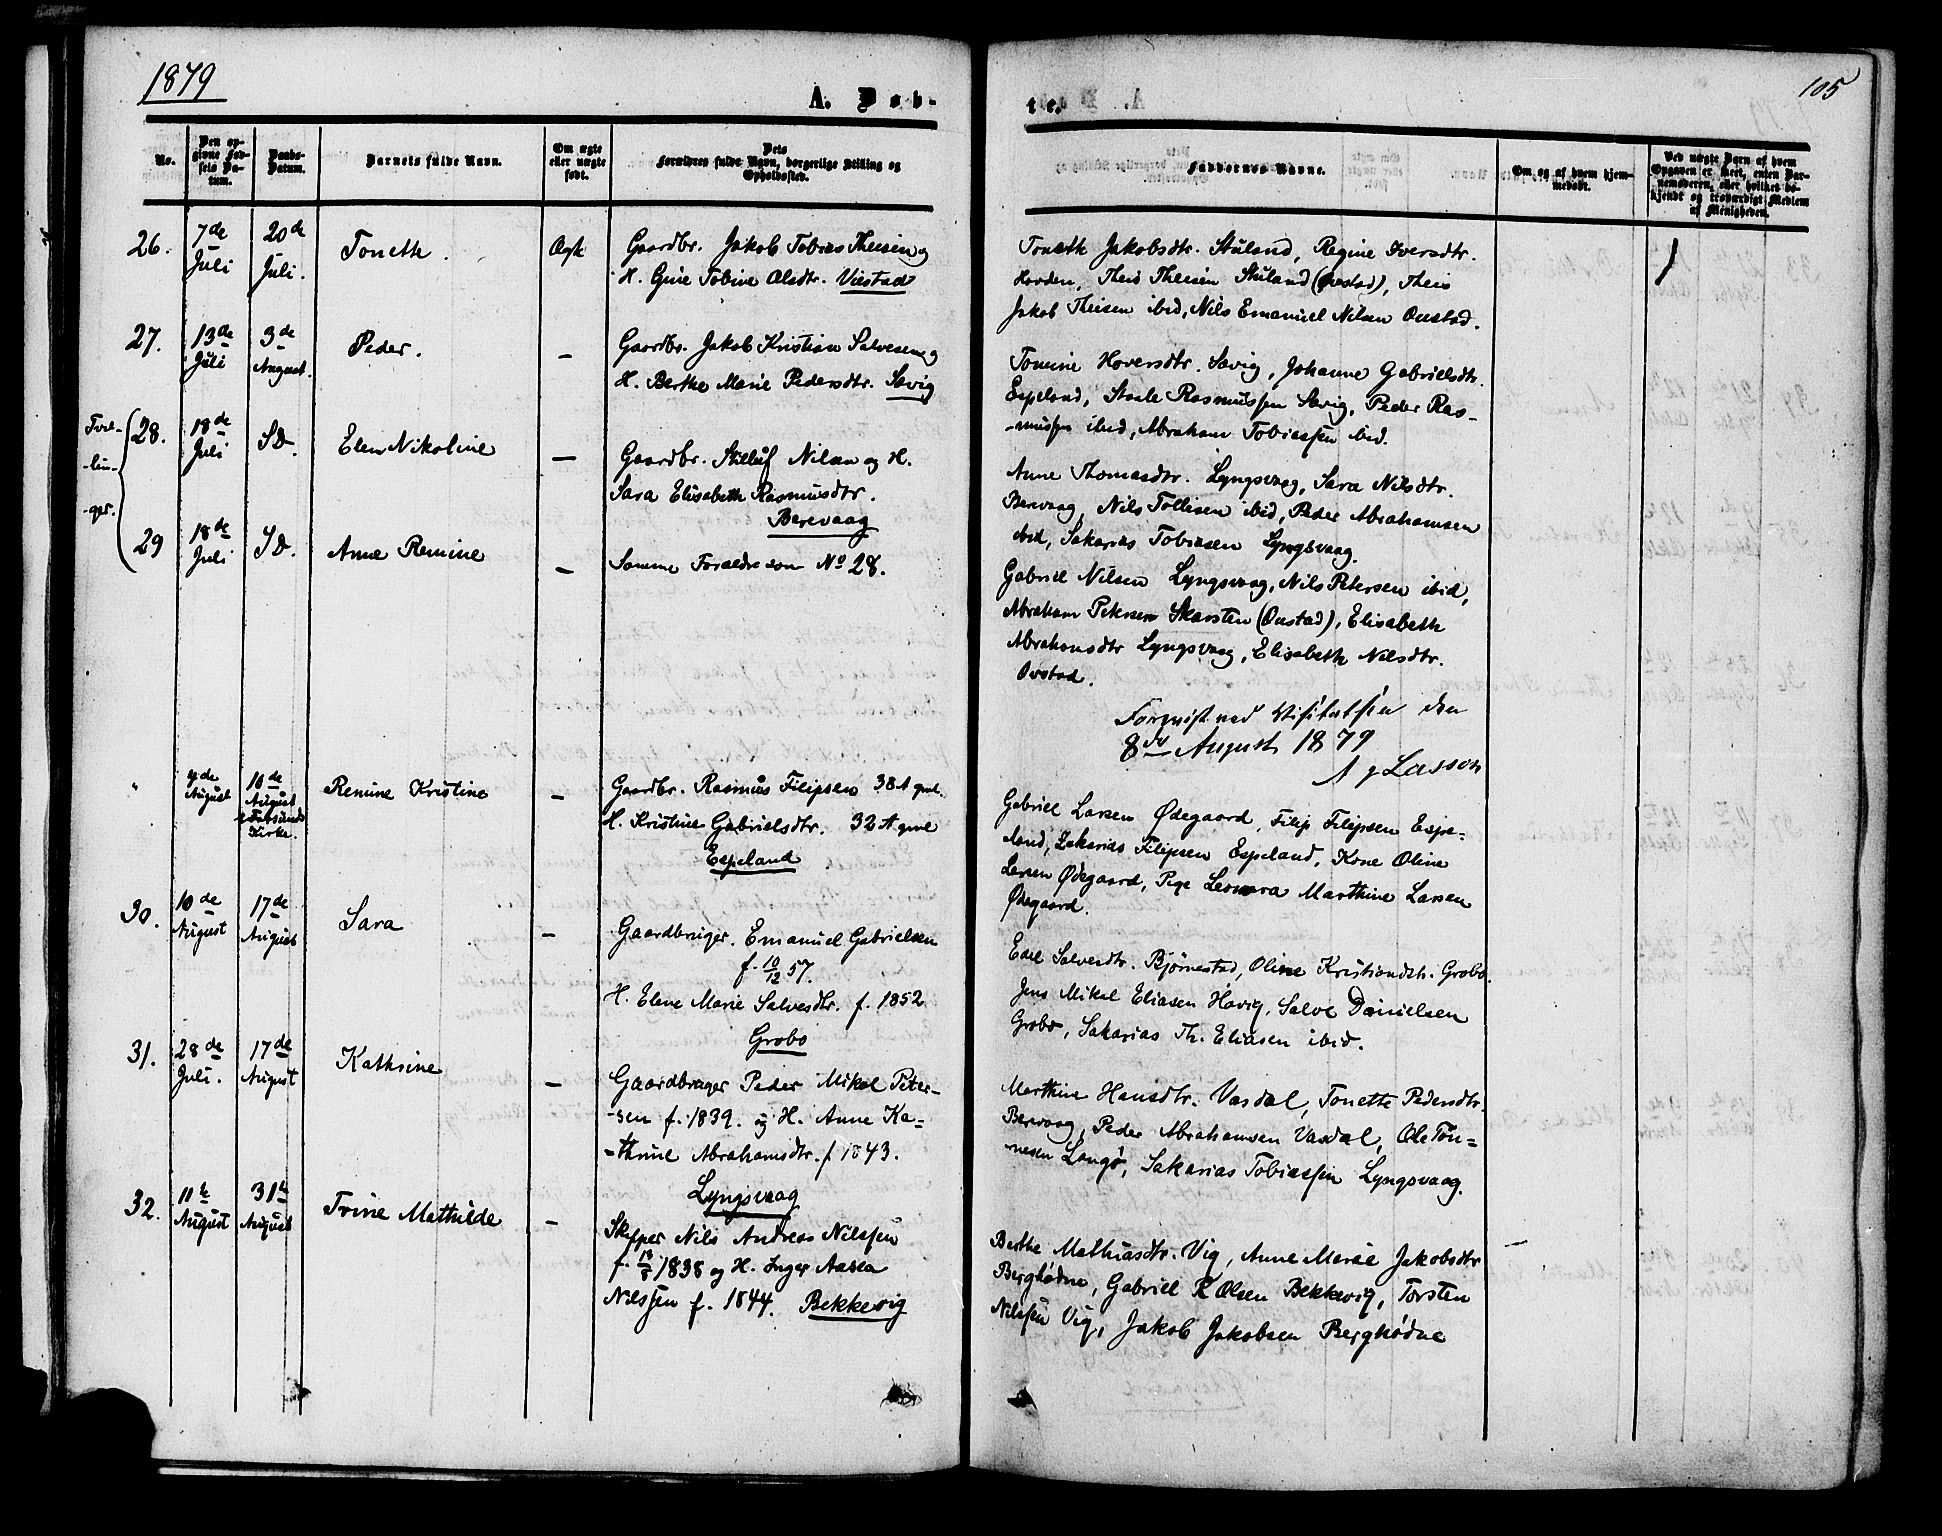 1879
105
A. Døb-
te.
No.
Den op-
givne Fød-
sels Da-
tum.
Daabs-
Datum.
Barnets fulde Navn.
Om ægte
eller uægte
født.
Dets
Forældres fulde Navn, borgerlige Stilling og
Opholdssted.
Faddernes Navne.
Om og af hvem hjem-
medøbt.
Ved uægte Barn af hvem
Opgaven er skeet, enten Bar-
nemoderen, eller hvilket be-
kjendt og troværdigt Medlem
af Menigheden.
26.
7de
Juli
20de
Juli.
Toneth.
Ægte
Gaardbr. Jakob Tobias Theisen og
H. Gine Tobine Olsdtr. Viestad
Toneth Jakobsdtr. Stuland, Regine Iversdtr.
Hovden, Theis Theisen Stuland (Ovstad), Theis
Jakob Theisen ibid, Nils Emanuel Nilsen Ovstad.
27.
13de
Juli
3de
August.
Peder.
–
Gaardbr. Jakob Kristian Salvesen og
H. Berthe Marie Pedersdtr. Sævig
Tomine Hoversdtr. Sævig, Johanne Gabrielsdtr.
Espeland, Staale Rasmussen Sævig, Peder Ras-
-mussen ibid, Abraham Tobiassen ibid.
Tvil-
-lin-
-ger.
28.
18de
Juli
SD.
Elen Nikoline
–
Gaardbr. Nilsen og H.
Sara Elisabeth Rasmusdtr.
Berevaag
Anne Thomasdtr. Lyngsvaag, Sara Nilsdtr.
Berevaag, Nils Tollisen ibid, Peder Abrahamsen
ibid, Sakarias Tobiasen Lyngsvaag.
29
18de
Juli
SD.
Anne Remine
–
Samme Forældre som No 28.
Gabriel Nilsen Lyngsvaag, Nils Petersen ibid,
Abraham Petersen Skarsten (Ovstad), Elisabeth
Abrahamsdtr Lyngsvaag, Elisabeth Nilsdtr.
Ovstad.
Forevist ved Visitatsen den
8de August 1879
Lasson
"
4de
August
10de
August
Farsunds
Kirke.
Remine Kristine
–
Gaardbr. Rasmus Filipsen 38 A gml.
H. Kristine Gabrielsdtr. 32 A gml
Espeland
Gabriel Larsen Ødegaard, Filip Filipsen Espe-
land, Zakarias Filipsen Espeland, Kone Oline
Larsen Ødegaard, Pige Leonora Marthine Larsen
Ødegaard.
30.
10de
August
17de
August
Sara
–
Gaardbruger. Emanuel Gabrielsen
f. 10/12 57.
H. Elene Marie Salvesdtr. f. 1852.
Grobo
Salvesdtr. Bjørnestad, Oline Kristiansdtr. Grobo.
Jens Mikal Eliasen Havig, Salve Danielsen
Grobo, Sakarias Th. Eliasen ibid.
31.
28de
Juli.
17de
August
Kathrine
–
Gaardbruger Peder Mikal Peter-
-sen f. 1839. og H. Anne Ka-
-thrine Abrahamsdtr. f 1843.
Lyngsvaag
Marthine Hansdtr. Vasdal, Tonette Pedersdtr.
Berevaag, Peder Abrahamsen Vasdal, Ole Ton-
nesen Langø, Sakarias Tobiassen Lyngsvaag.
32.
11te
August
31te
August
Trine Mathilde
–
Skipper Nils Andreas Nilssen
f. 18/8 1838 og H. Inger Aasea
Nilssen f. 1844. Bekkevig
Berthe Mathiasdtr. Vig, Anne Marie Jakobsdtr
Berghødne, Gabriel R Olsen Bekkevig, Torsten
Nilssen Vig, Jakob Jakobsen Berghødne